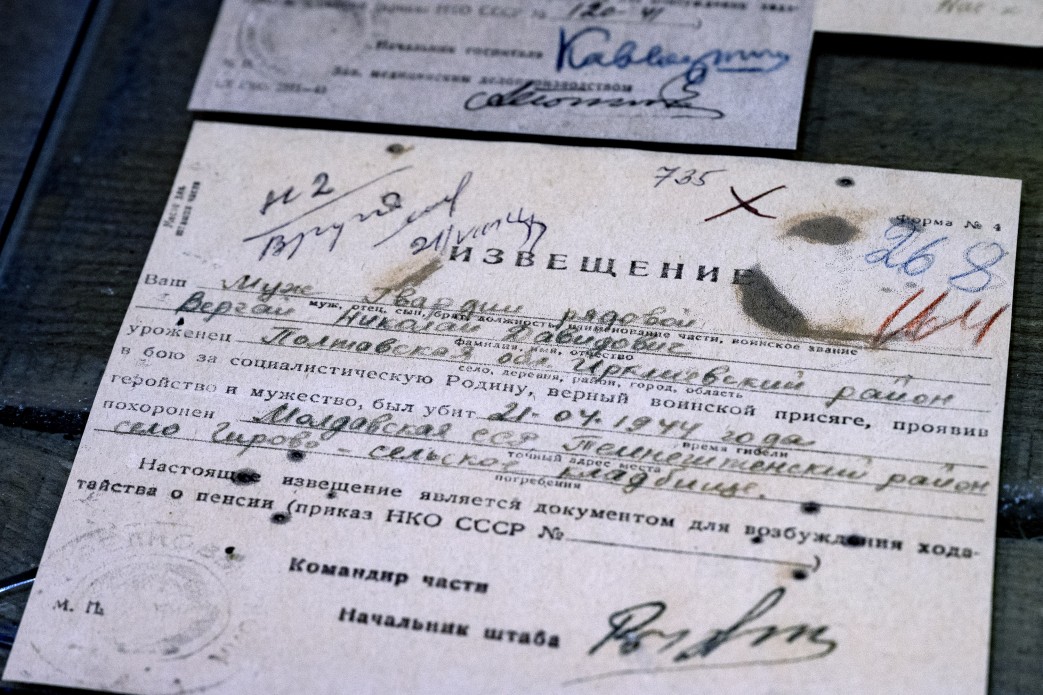 приказ НКО СССР № 120-41
Начальник госпиталя
Зав. медицинским делопроизводством
735
Форма № 4
№ 2
26 8
ИЗВЕЩЕНИЕ
Ваш Муж Гвардии рядовой
муж, отец, сын, брат, должность, наименование части, воинское звание
Вергай Николай Давидович
фамилия, имя, отчество
уроженец Полтавская обл. Иркліевский район
село, деревня, район, город, область
в бою за социалистическую Родину, верный воинской присяге, проявив
геройство и мужество, был убит 21-04-1944 года
время гибели
похоронен Молдавская ССР район
точный адрес места
село Гирово - сельское кладбище.
погребения
Настоящее извещение является документом для возбуждения хода-
тайства о пенсии (приказ НКО СССР № )
Командир части
М. П.
Начальник штаба